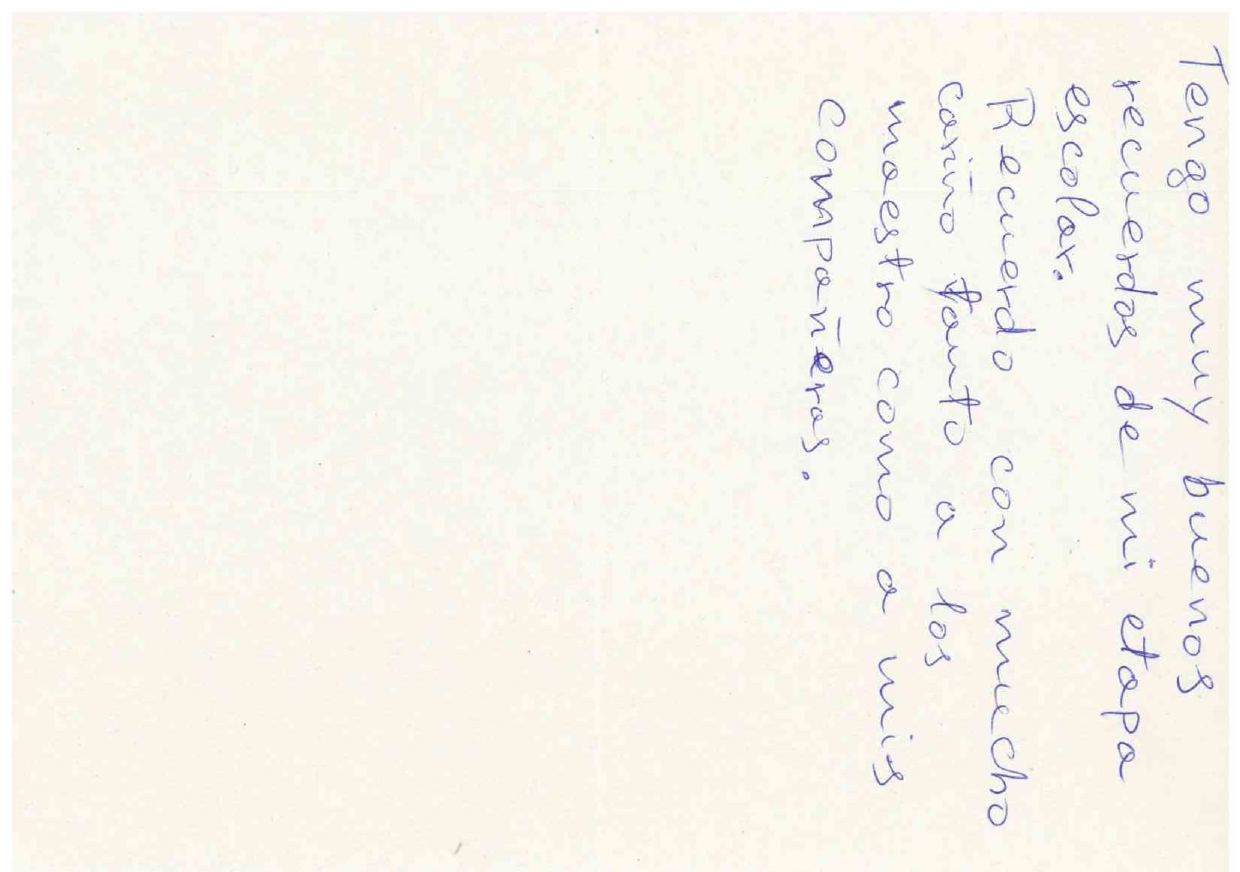 Tengo muy buenos
recuerdos de mi etapa
escolar.
Recuerdo con mucho
cariño tanto a los
maestro como a mis
compañeras.